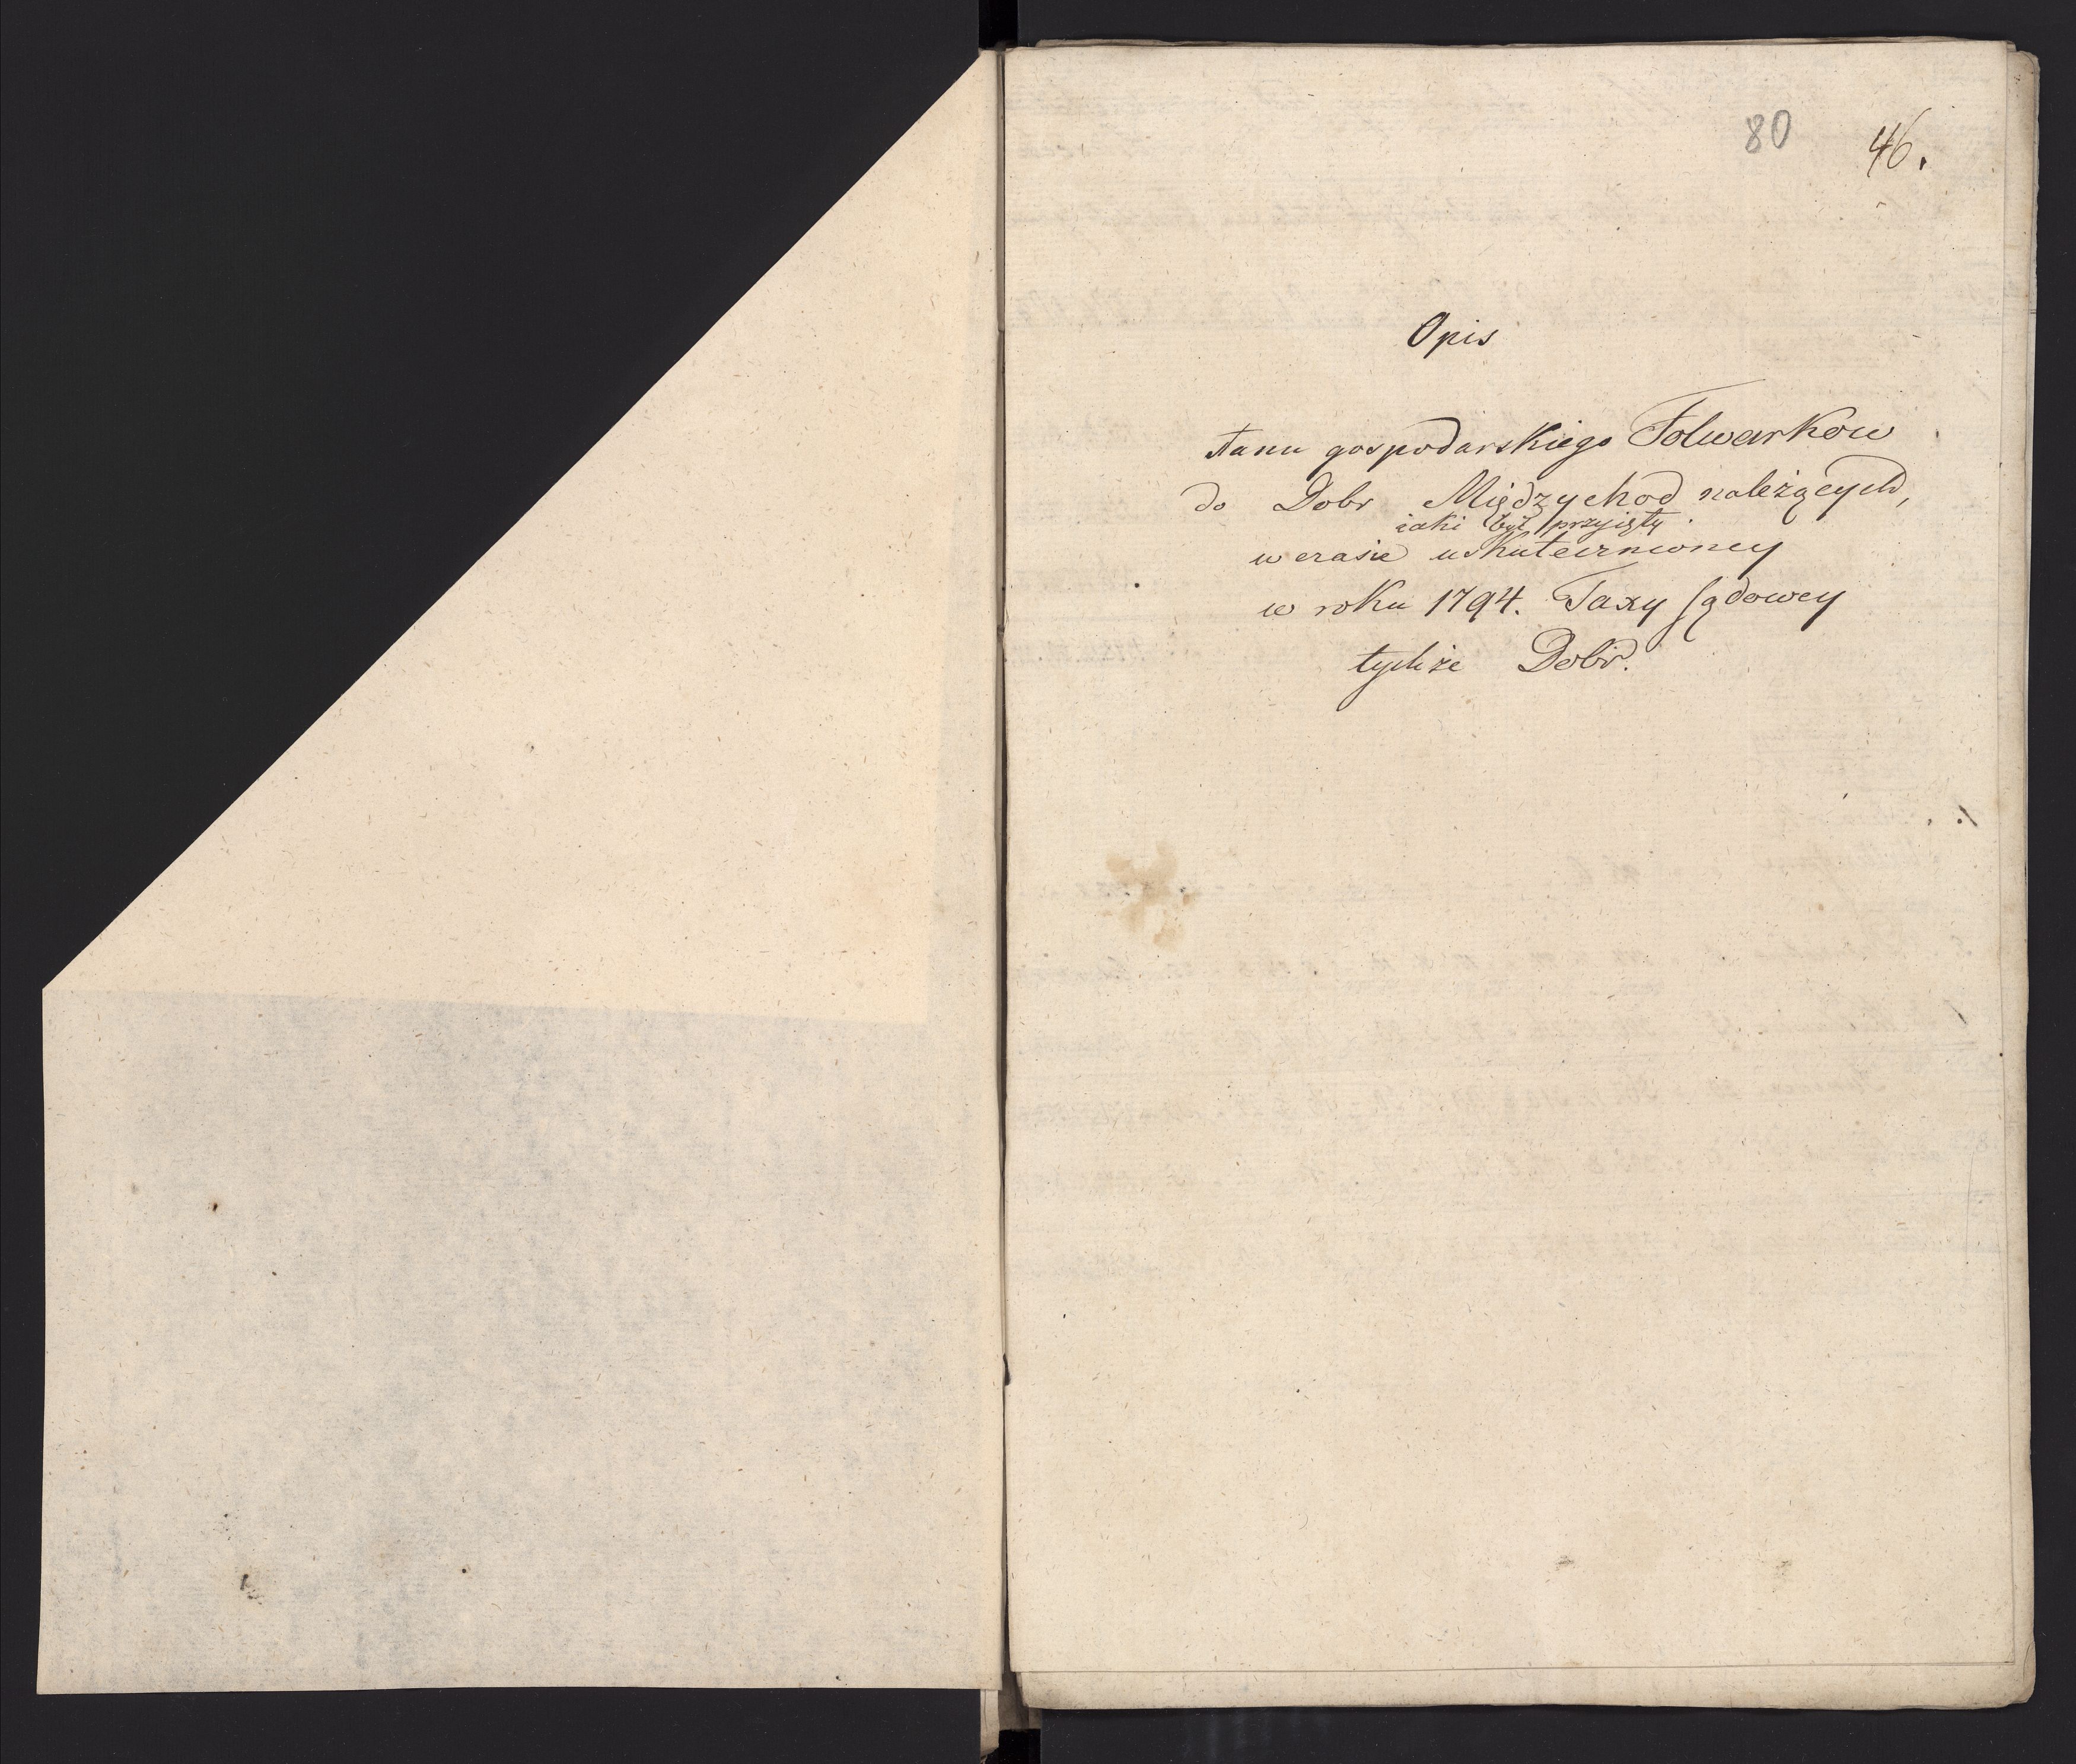 80 46.
Opis
stanu gospodarskiego Folwarkow
do Dobr Międzychod należących,
iaki był przyięty
w czasie uskutecznioney
w roku 1794. Taxy sądowey
tychże Dobr.